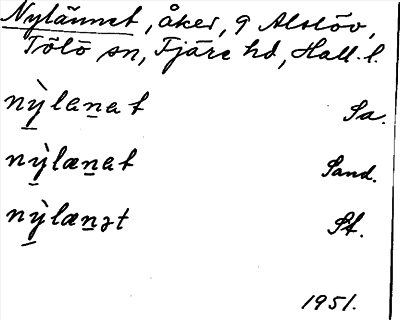 Nylännet, åker, 9 Alslöv,
Tölö sn, Fjäre hd, Hall. l.
nỳ̠la͏n̠at Sa.
nỳ̠læn̠at Sand.
nỳ̠læn̠ət St.
1951.